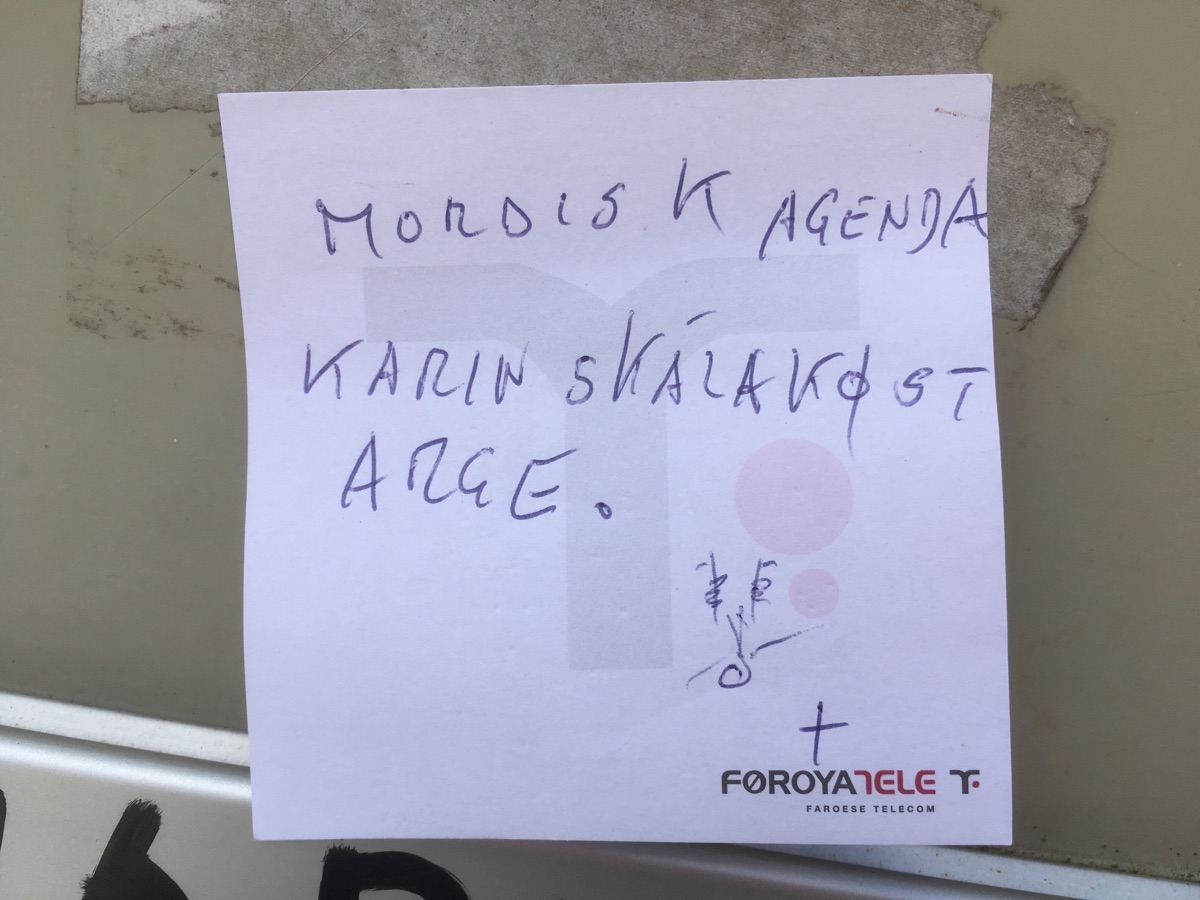 MORDISK AGENDA
KARIN SKÁLAKØST
ARGE.
FØROYATELE
FAROESE TELECOM